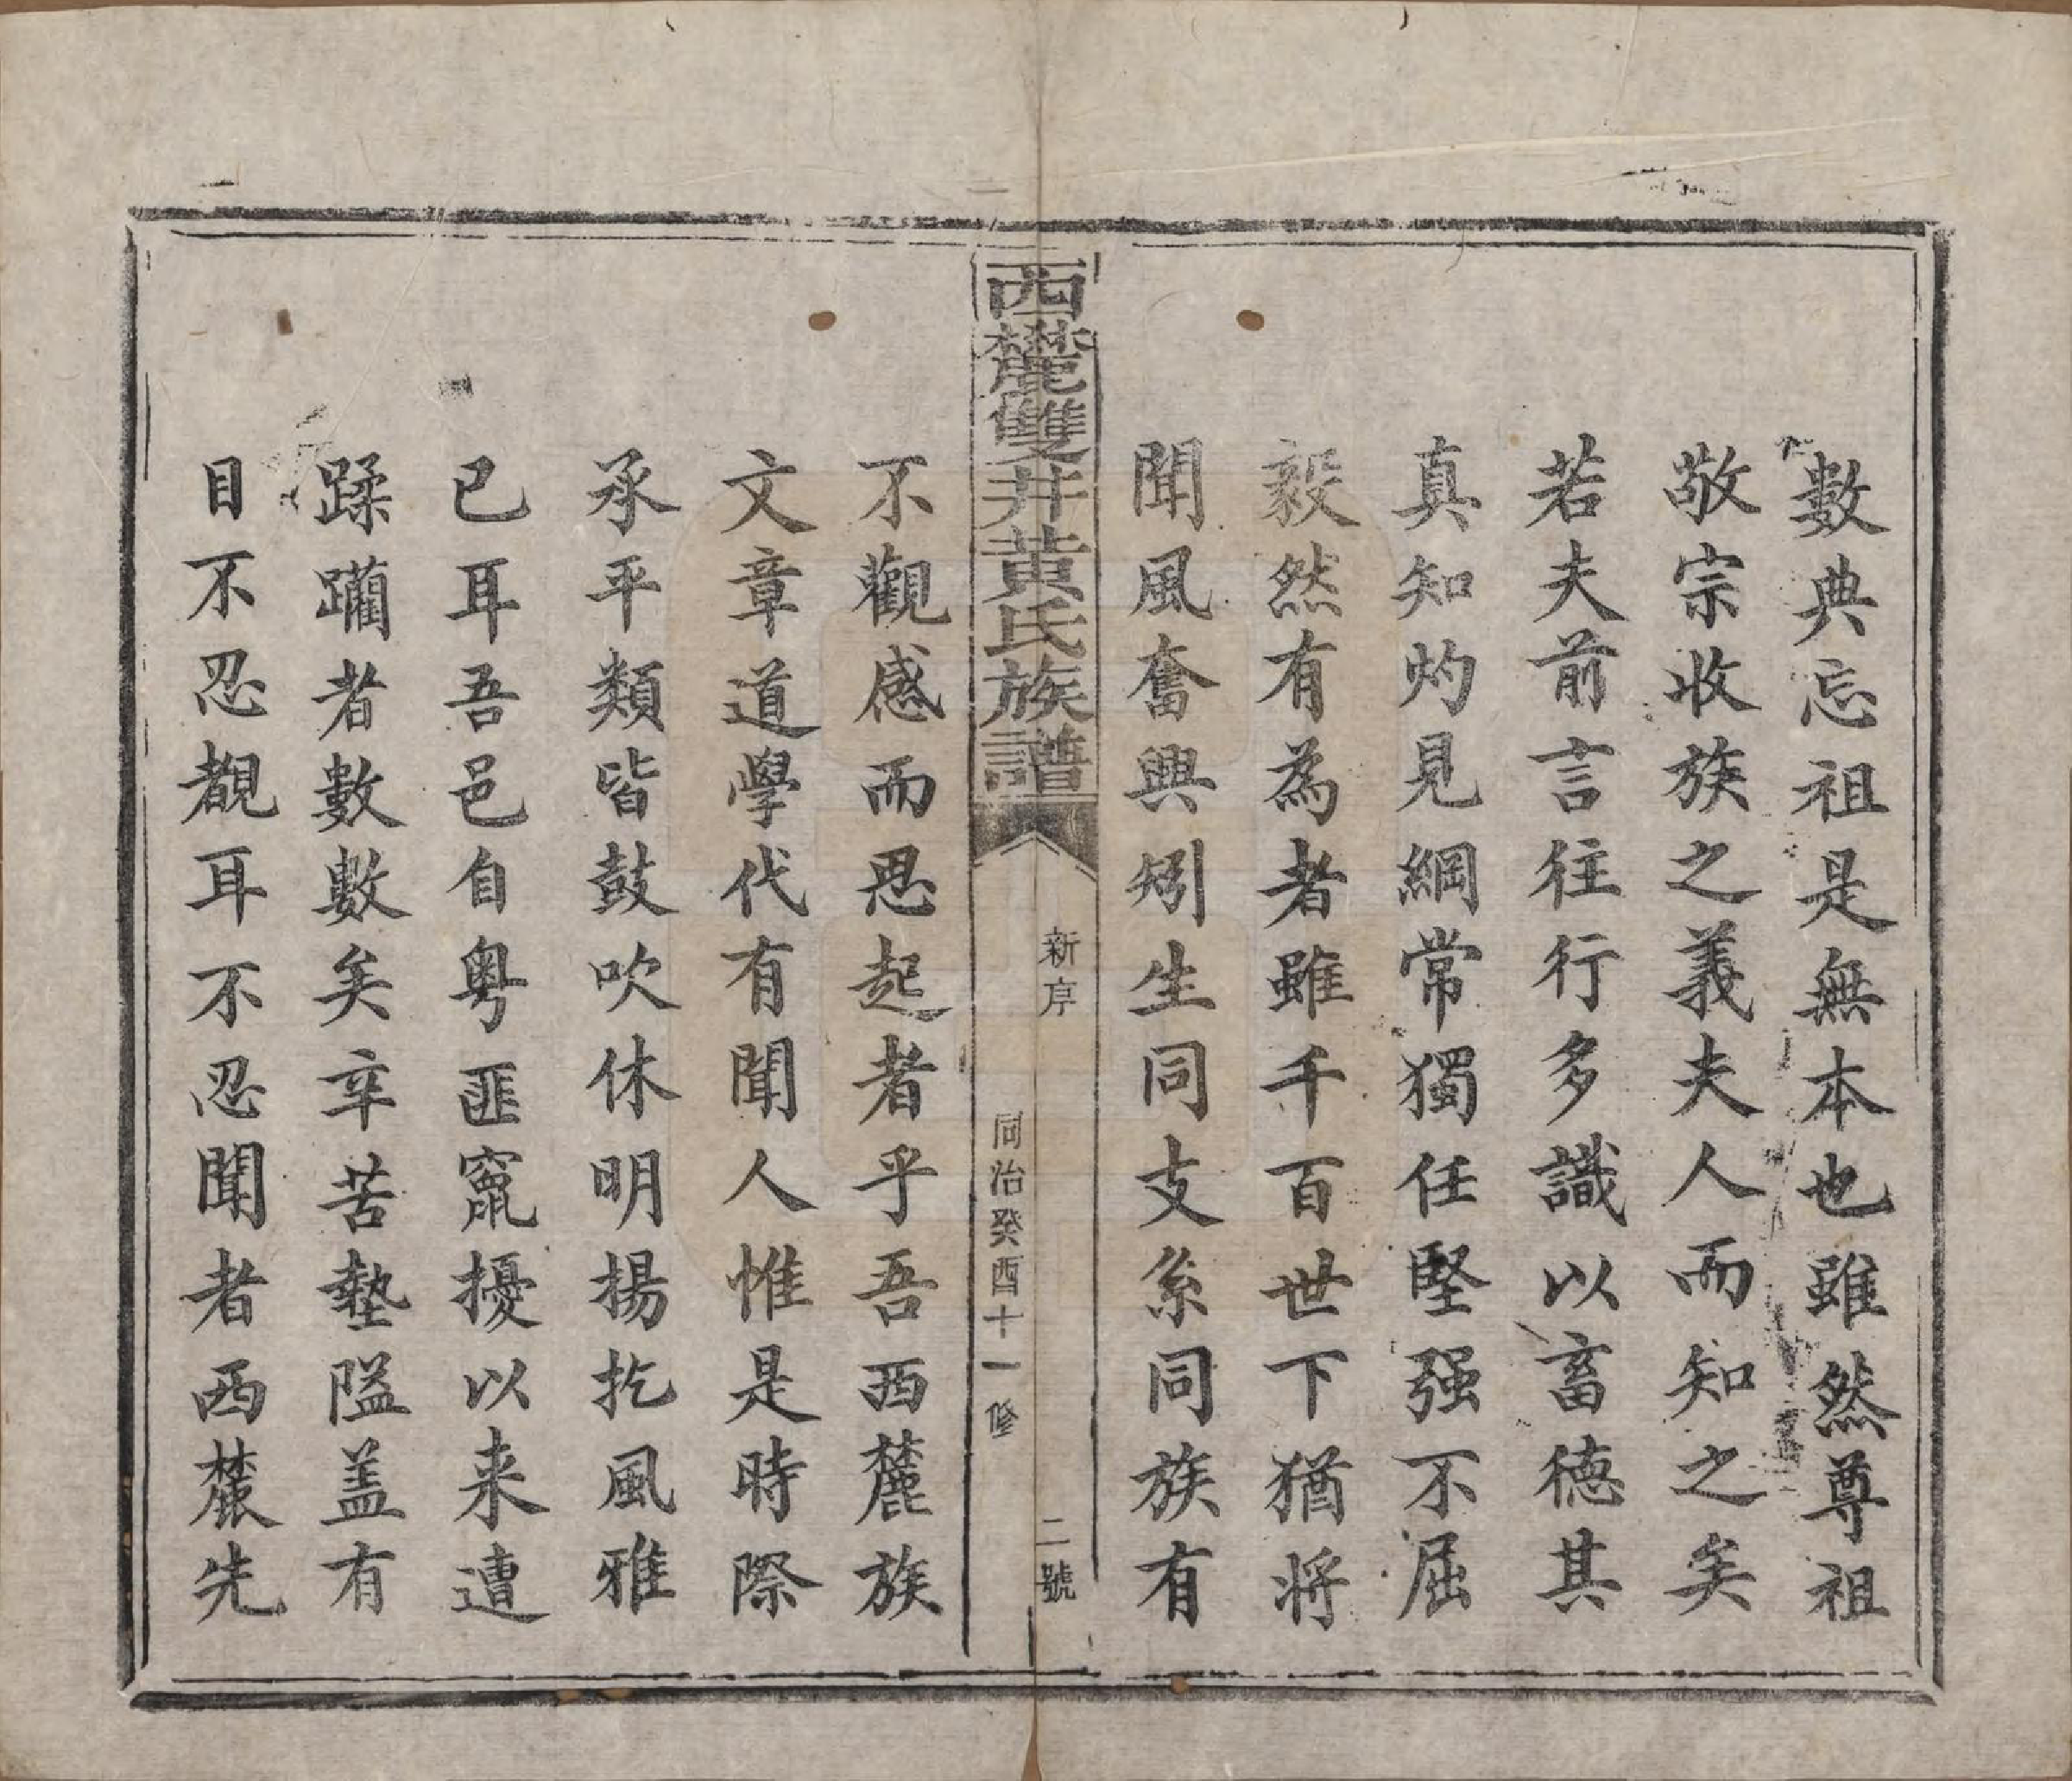 數典忘祖是無本也雖然尊祖
敬宗收族之義夫人而知之矣
若夫前言往行多識以畜德其
真知灼見綱常獨任堅强不屈
毅然有為者雖千百世下猶將
聞風奮興矧生同支系同族有
西麓雙井黄氏族譜
新序
二號
同治癸酉十一修
不觀感而思起者乎吾西麓族
文章道學代有聞人惟是時際
承平類皆鼓吹休明揚扢風雅
已耳吾邑自粵匪竄擾以来遭
蹂躪者數數矣辛苦墊隘盖有
目不忍覩耳不忍聞者西麓先